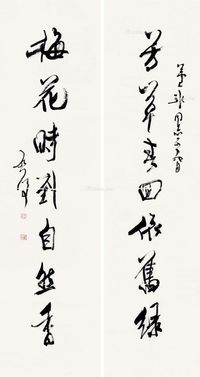 芳草春回依舊綠
梅花時到自然香